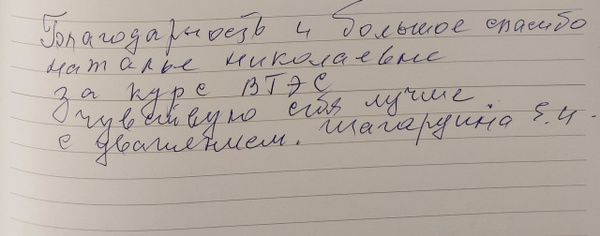 Благодарность и большое спасибо
Наталье Николаевне
за курс ВТЭС
Чувствую себя лучше
с уважением. Шагардина Е.Н.